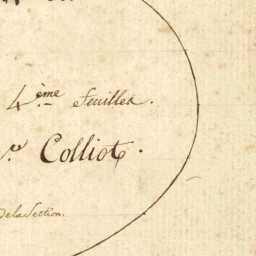 4.ème feuilles.
Colliot.
De la Section.